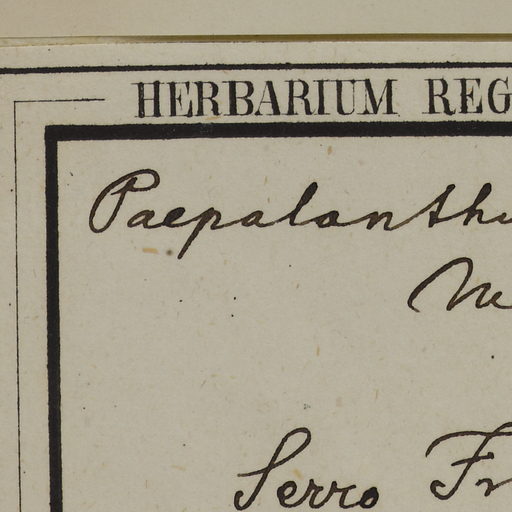 HERBARIUM REG
Paepalanthu
Me
Serro Fr